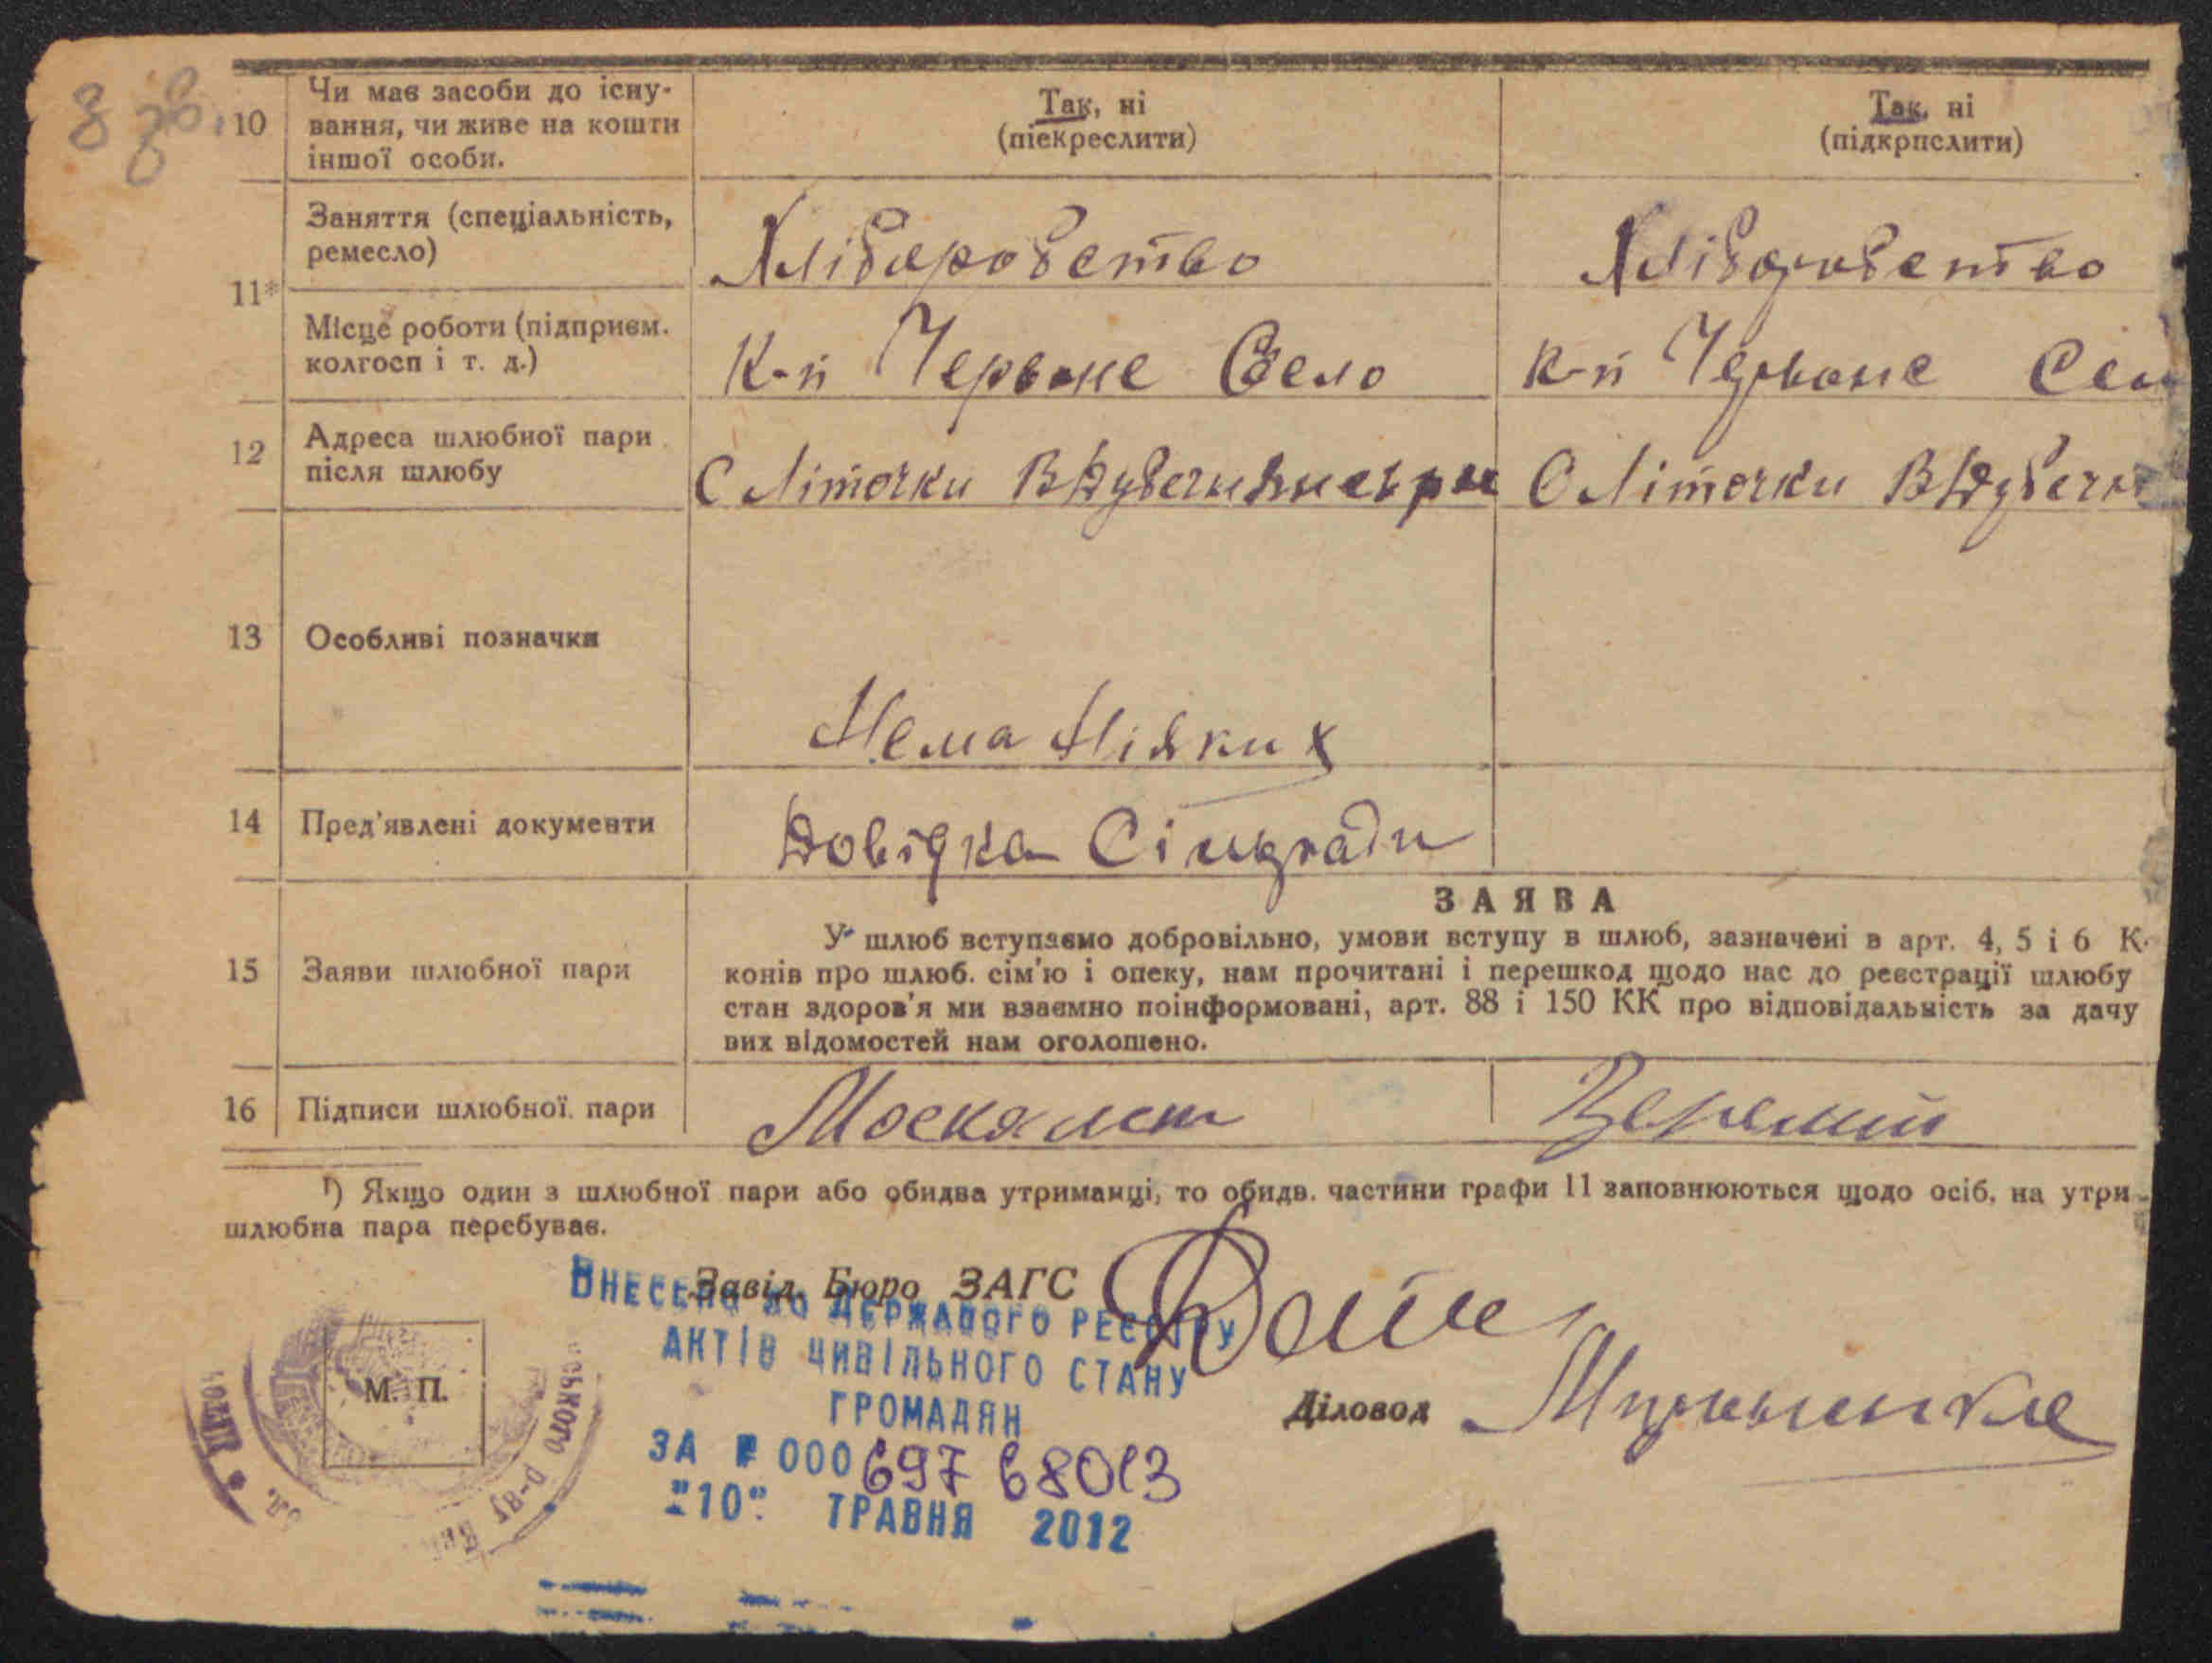 8 зв.
10 Чи має засоби до існу- Так, ні Так, ні
вання, чи живе на кошти (піекреслити) (підкрпслити)
іншої особи.
11* Заняття (спеціальність, Хліборобство Хліборобство
ремесло)
Місце роботи (підприєм. К-п Червоне Село К-п Червоне Сел
колгосп і т. д.)
12 Адреса шлюбної пари С Літочки В Дубечн С Літочки В Дубечн
після шлюбу
13 Особливі позначки
Нема Ніяких
14 Пред'явлені документи Довідка Сільради
ЗАЯВА
У шлюб вступаємо добровільно, умови вступу в шлюб, зазначені в арт. 4, 5 і 6 К.
15 Заяви шлюбної пари конів про шлюб. сім'ю і опеку, нам прочитані і перешкод щодо нас до реєстрації шлюбу
стан здоров'я ми взаємно поінформовані, арт. 88 і 150 КК про відповідальність за дачу
вих відомостей нам оголошено.
16 Підписи шлюбної пари Веремій
¹) Якщо один з шлюбної пари або обидва утриманці, то обидв. частини графи 11 заповнюються щодо осіб, на утри-
шлюбна пара перебуває.
Завід. Бюро ЗАГС
ВНЕСЕНО ДО ДЕРЖАВОГО РЕЄСТРУ
АКТІВ ЦИВІЛЬНОГО СТАНУ
ГРОМАДЯН
Діловод
М. П.
ЗА № 000 697 68013
"10" ТРАВНЯ 2012
ського р-ву